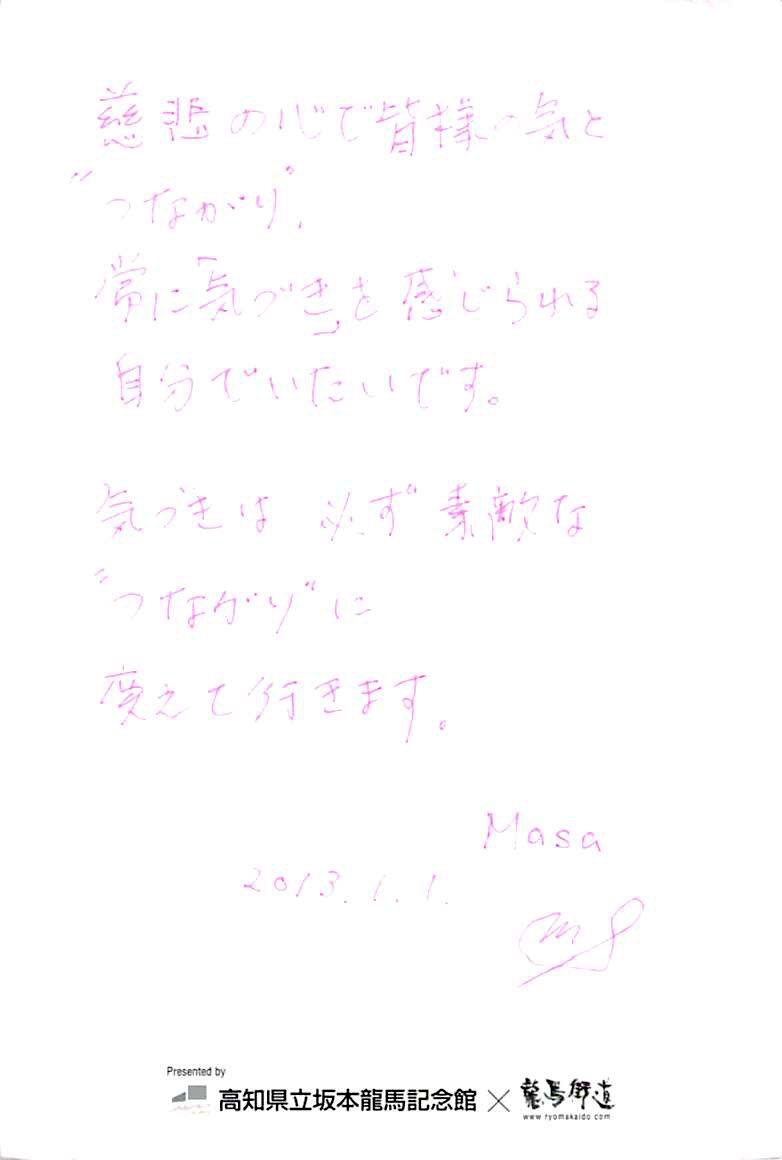 慈悲の心で皆様の気と
“つながり”,
常に「気づき」を感じられる
自分でいたいです。
気づきは 必ず 素敵な
“つながり”に
変えて行きます。
Masa
2013.1.1.
Presented by
高知県立坂本龍馬記念館×龍馬街道
www.ryomakaido.com